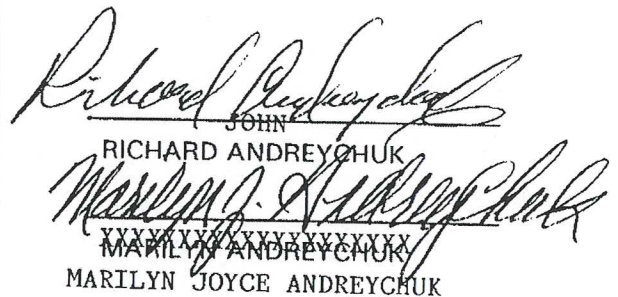 Richard Andreychuk
JOHN
RICHARD ANDREYCHUK
Marilyn J. Andreychuk
XXXXXXXXXXXXXXXXXXXXXX
MARILYN ANDREYCHUK
MARILYN JOYCE ANDREYCHUK